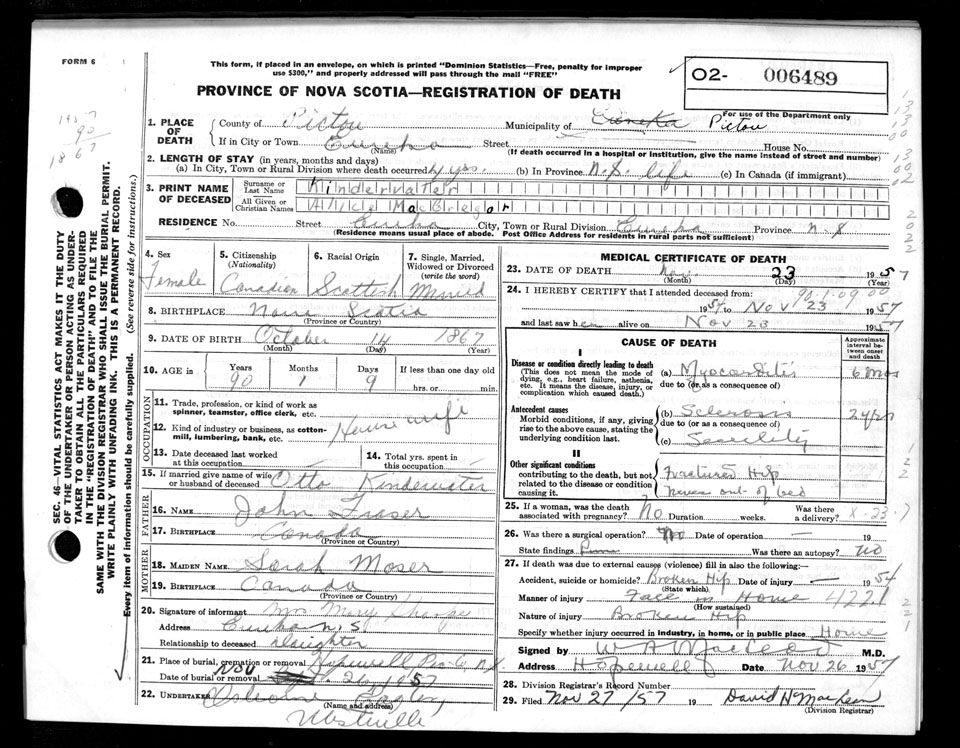 FORM 6
This form, if placed in an envelope, on which is printed "Dominion Statistics—Free, penalty for improper
use $300," and properly addressed will pass through the mail "FREE"
O2- 006489
For use of the Department only
PROVINCE OF NOVA SCOTIA—REGISTRATION OF DEATH
1957
90
1867
1. PLACE OF DEATH
County of Pictou Municipality of Eureka Pictou
If in City or Town Eureka Street House No.
(Name) (If death occurred in a hospital or institution, give the name instead of street and number)
2. LENGTH OF STAY (in years, months and days)
(a) In City, Town or Rural Division where death occurred yrs. (b) In Province N.S. life (c) In Canada (if immigrant)
3. PRINT NAME OF DECEASED
Surname or Last Name Kindervater
All Given or Christian Names MacGregor
RESIDENCE No. Street Eureka City, Town or Rural Division Eureka Province N.S
(Residence means usual place of abode. Post Office Address for residents in rural parts not sufficient)
SEC. 46—VITAL STATISTICS ACT MAKES IT THE DUTY
OF THE UNDERTAKER OR PERSON ACTING AS UNDER-
TAKER TO OBTAIN ALL THE PARTICULARS REQUIRED
IN THE "REGISTRATION OF DEATH" AND TO FILE THE
SAME WITH THE DIVISION REGISTRAR WHO SHALL ISSUE THE BURIAL PERMIT.
WRITE PLAINLY WITH UNFADING INK. THIS IS A PERMANENT RECORD.
Every item of information should be carefully supplied. (See reverse side for instructions.)
4. Sex
Female
5. Citizenship
(Nationality)
Canadian
6. Racial Origin
Scottish
7. Single, Married,
Widowed or Divorced
(write the word)
Married
8. BIRTHPLACE Nova Scotia
(Province or Country)
9. DATE OF BIRTH October 14 1867
(Month) (Day) (Year)
10. AGE in Years Months Days If less than one day
90 1 9 hrs. or min.
OCCUPATION
11. Trade, profession, or kind of work as
spinner, teamster, office clerk, etc.
12. Kind of industry or business, as cotton-
mill, lumbering, bank, etc.
House wife
13. Date deceased last worked
at this occupation
14. Total yrs. spent in
this occupation
15. If married give name of wife
or husband of deceased Otto Kindervater
FATHER
16. NAME John Fraser
17. BIRTHPLACE Canada
(Province or Country)
MOTHER
18. MAIDEN NAME Sarah Moser
19. BIRTHPLACE Canada
(Province or Country)
20. Signature of informant Mrs Mary Sharpe
Address Eureka N.S
Relationship to deceased daughter
21. Place of burial, cremation or removal Hopewell
Date of burial or removal Nov 26 1957
22. UNDERTAKER
(Name and address)
Westville
MEDICAL CERTIFICATE OF DEATH
23. DATE OF DEATH Nov. 23 1957
(Month) (Day) (Year)
24. I HEREBY CERTIFY that I attended deceased from:
1954 to Nov 23 1957
and last saw her alive on Nov 23 1957
CAUSE OF DEATH
Approximate
interval be-
tween onset
and death
I
Disease or condition directly leading to death
(This does not mean the mode of
dying, e.g., heart failure, asthenia,
etc. It means the disease, injury, or
complication which caused death.)
(a) Myocarditis 6 mos
due to (or as a consequence of)
Antecedent causes
Morbid conditions, if any, giving
rise to the above cause, stating the
underlying condition last.
(b) Sclerosis
due to (or as a consequence of)
(c) Senility
II
Other significant conditions
contributing to the death, but not
related to the disease or condition
causing it.
Fractured Hip
Never out of bed
25. If a woman, was the death
associated with pregnancy? No Duration weeks. Was there
a delivery?
26. Was there a surgical operation? No Date of operation — 19
State findings Was there an autopsy? no
27. If death was due to external causes (violence) fill in also the following:—
Accident, suicide or homicide? Broken Hip Date of injury — 1954
(State which)
Manner of injury Fall in Home 4221
(How sustained)
Nature of injury Broken Hip
Specify whether injury occurred in industry, in home, or in public place Home
Signed by W A MacLeod M.D.
Address Hopewell Date Nov 26 1957
28. Division Registrar's Record Number
29. Filed Nov 27/57 19 David H MacKean
(Division Registrar)